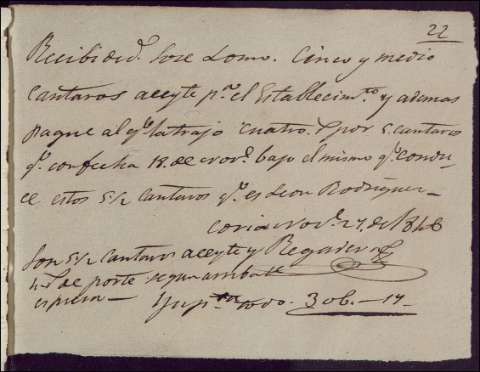 22
Recibi de d.n Jose Lomo. Cinco y medio
cantaros aceyte p.a el Establecim.to y ademas
pague al q.e la trajo cuatro r.s por 5 cantaros
q.e con fecha 18 de nov.e bajo el mismo q.e condu-
ce estos 5 1/2 cantaros q.e es Leon Rodriguez
Coria Nov.e 27 de 1846
Son 5 1/2 cantaros aceyte y
4 r.s de porte segun arriba se
espresa
todo. 306.-17-